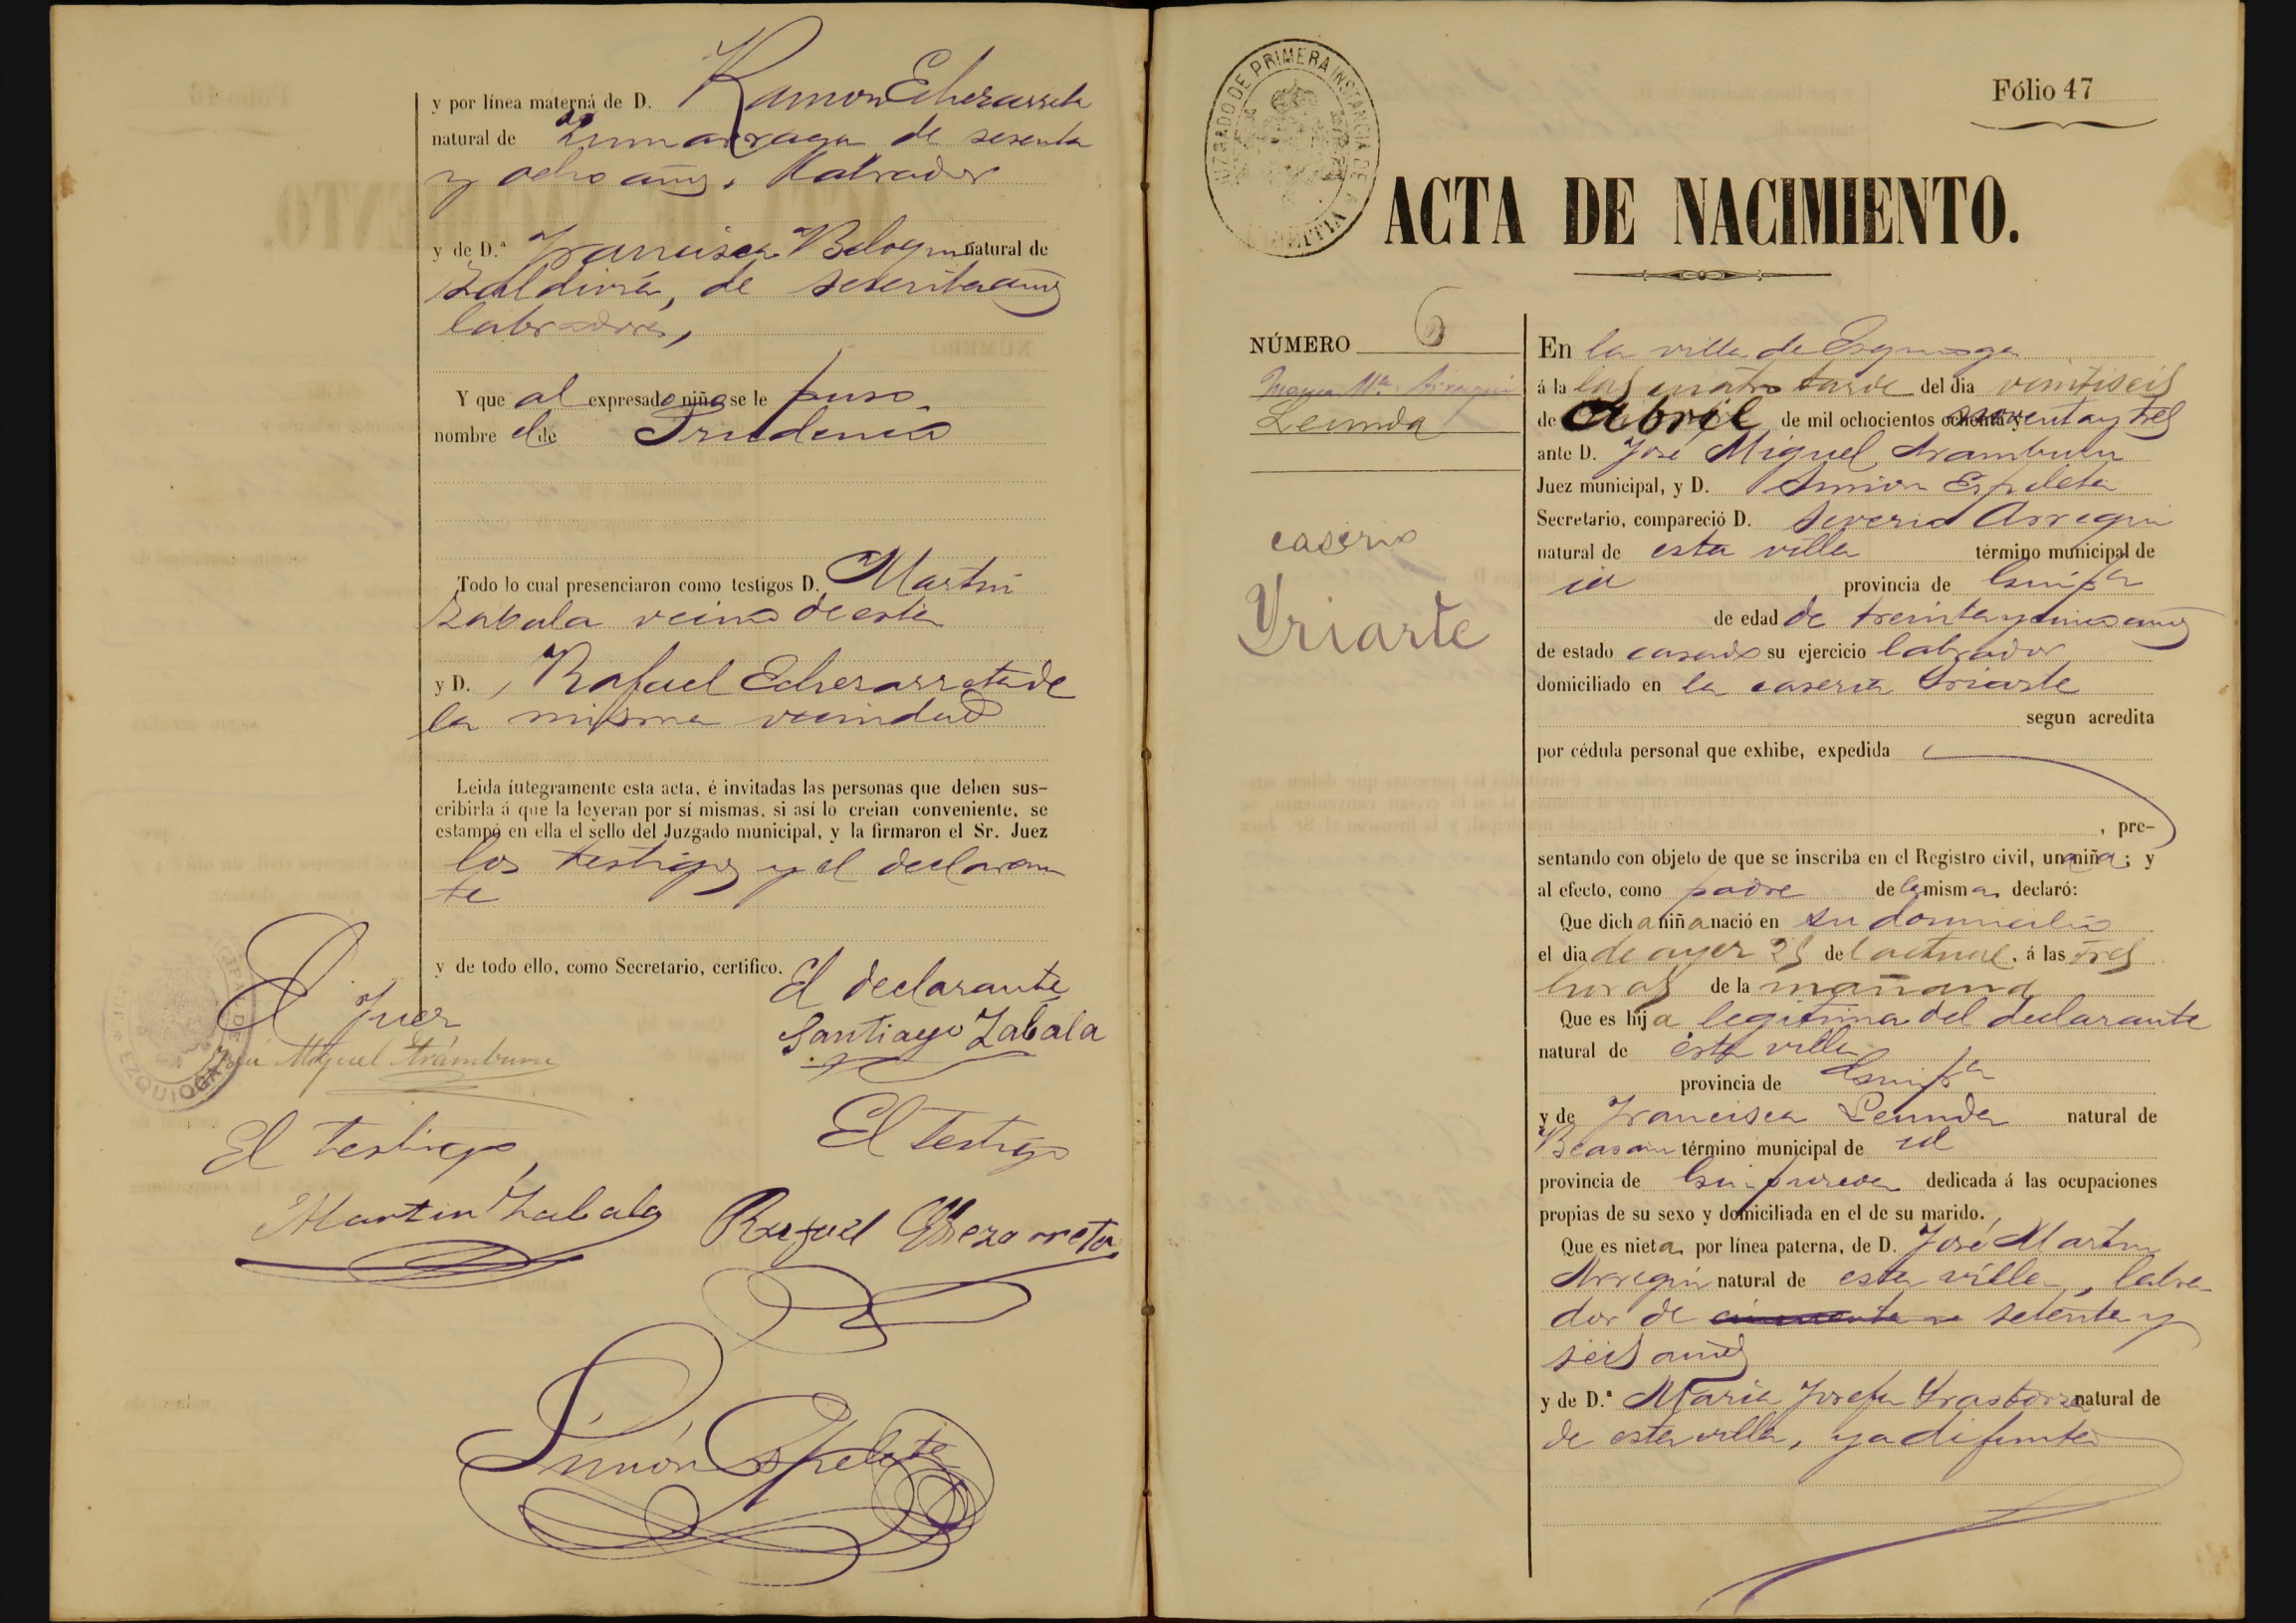 y por línea materna de D. Ramon Echezarreta
natural de Zumarraga de sesenta
y ocho años, labrador
y de D.ª Francisca Beloqui natural de
Zaldivia, de sesenta años
labradores,
Y que al expresado niño se le puso
nombre el de Prudencio
Todo lo cual presenciaron como testigos D. Martin
Zabala vecino de esta
y D. Rafael Echezarreta de
la misma vecindad
Leida íntegramente esta acta, é invitadas las personas que deben sus-
cribirla á que la leyeran por sí mismas, si así lo creian conveniente, se
estampó en ella el sello del Juzgado municipal, y la firmaron el Sr. Juez
los testigos y el declaran
te
y de todo ello, como Secretario, certifico.
El declarante
Santiago Zabala
El Juez
José Miguel Arámburu
EZQUIOGA
El testigo
Martin Zabala
El testigo
Rafael Echezarreta
Simón Espeleta
Fólio 47
JUZGADO DE PRIMERA INSTANCIA DE AZPEITIA
ACTA DE NACIMIENTO.
NÚMERO 6
Mª Arregui
Leunda
caserio
Yriarte
En la villa de Ezquioga
á la las cuatro tarde del dia veintiseis
de Abril de mil ochocientos ochenta y noventa y tres
ante D. José Miguel Aramburu
Juez municipal, y D. Simon Espeleta
Secretario, compareció D. Severio Arregui
natural de esta villa término municipal de
id provincia de Guipª
de edad de treinta y cinco años
de estado casado su ejercicio labrador
domiciliado en la caseria Yriarte
segun acredita
por cédula personal que exhibe, expedida
, pre-
sentando con objeto de que se inscriba en el Registro civil, una niña; y
al efecto, como padre de la misma declaró:
Que dicha niña nació en su domicilio
el dia de ayer 25 del actual, á las tres
horas de la mañana
Que es hija legitima del declarante
natural de esta villa
provincia de Guipª
y de Francisca Leunda natural de
Beasain término municipal de id
provincia de Guipuzcoa dedicada á las ocupaciones
propias de su sexo y domiciliada en el de su marido.
Que es nieta por línea paterna, de D. José Martin
Arregui natural de esta villa, labra
dor de setenta y
seis años
y de D.ª Maria Josefa Yrastorza natural de
de esta villa, ya difunta